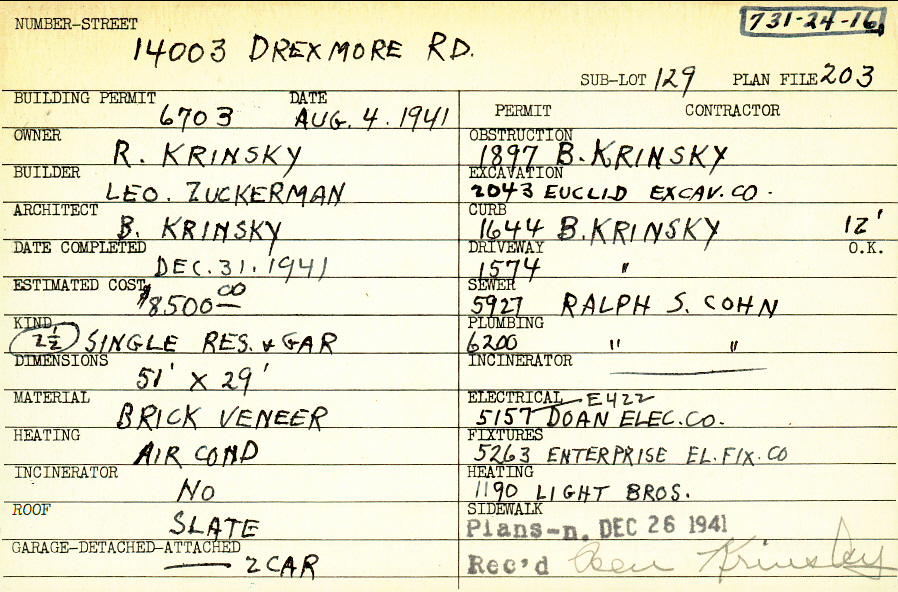 NUMBER-STREET
731-24-16
14003 DREXMORE RD.
SUB-LOT 129 PLAN FILE 203
BUILDING PERMIT DATE
6703 AUG. 4. 1941
OWNER
R. KRINSKY
BUILDER
LEO. ZUCKERMAN
ARCHITECT
B. KRINSKY
DATE COMPLETED
DEC. 31. 1941
ESTIMATED COST
$8500 00
KIND
2½ SINGLE RES. & GAR
DIMENSIONS
51' X 29'
MATERIAL
BRICK VENEER
HEATING
AIR COND
INCINERATOR
NO
ROOF
SLATE
GARAGE-DETACHED-ATTACHED
2 CAR
PERMIT CONTRACTOR
OBSTRUCTION
1897 B. KRINSKY
EXCAVATION
2043 EUCLID EXCAV. CO.
CURB
1644 B. KRINSKY 12'
DRIVEWAY O.K.
1574 "
SEWER
5927 RALPH S. COHN
PLUMBING
6200 " "
INCINERATOR
ELECTRICAL E422
5157 DOAN ELEC. CO.
FIXTURES
5263 ENTERPRISE EL. FIX. CO
HEATING
1190 LIGHT BROS.
SIDEWALK
Plans-n. DEC 26 1941
Rec'd Krinsky